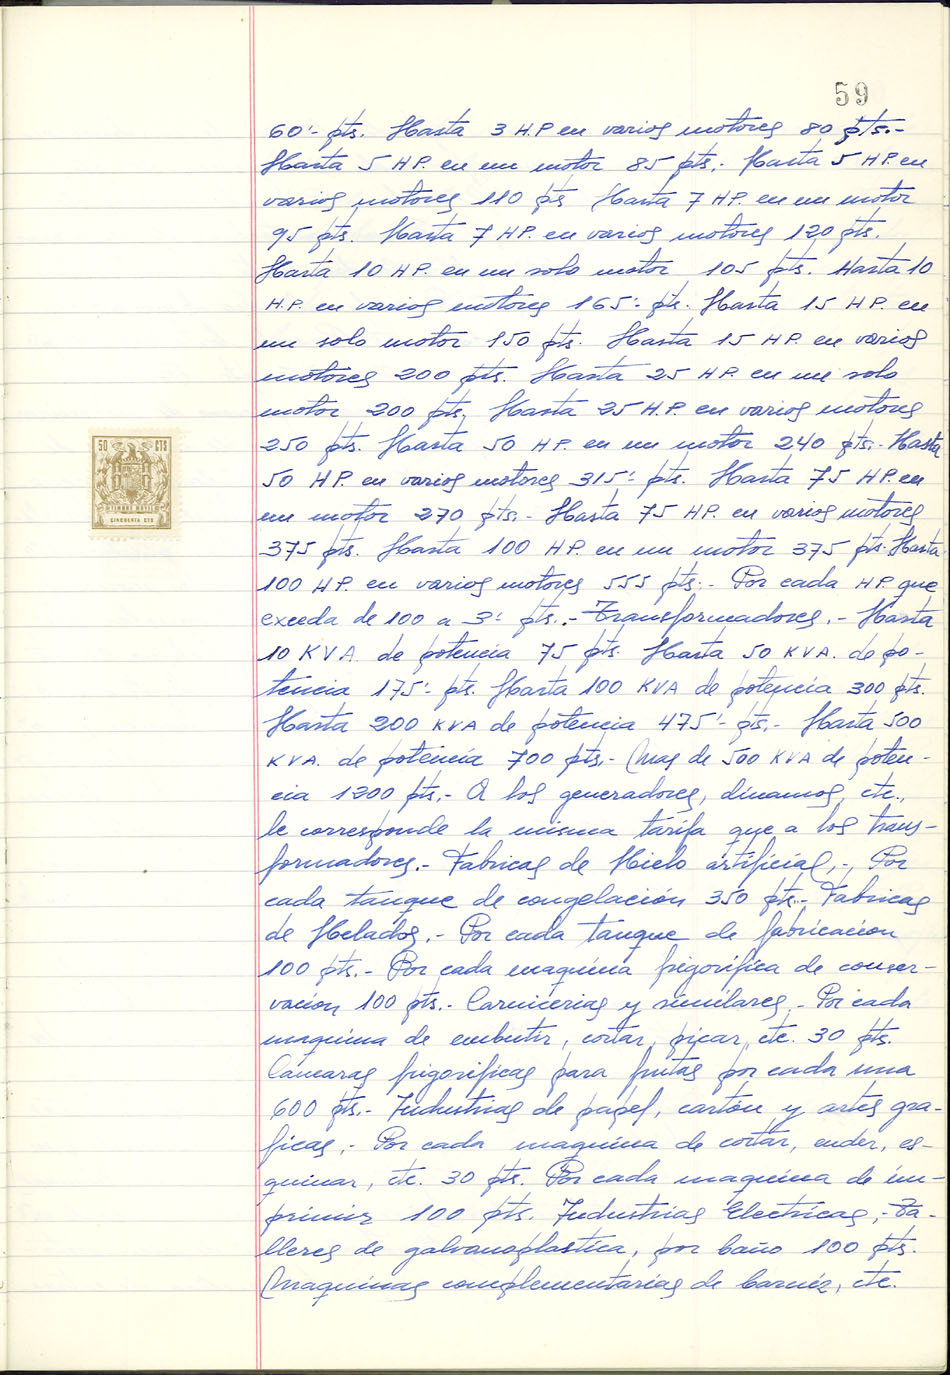 59
60'- pts. Hasta 3 H.P en varios motores 80 pts.-
Hasta 5 HP. en un motor 85 pts. Hasta 5 HP. en
varios motores 110 pts Hasta 7 HP. en un motor
95 pts. Hasta 7 HP. en varios motores 120 pts.
Hasta 10 HP. en un solo motor 105 pts. Hasta 10
H.P. en varios motores 165'- pts. Hasta 15 HP. en
un solo motor 150 pts. Hasta 15 HP. en varios
motores 200 pts. Hasta 25 HP. en un solo
motor 200 pts. Hasta 25 H.P. en varios motores
250 pts. Hasta 50 HP. en un motor 240 pts.- Hasta
50 HP. en varios motores 315'- pts. Hasta 75 HP. en
un motor 270 pts.- Hasta 75 HP. en varios motores
375 pts. Hasta 100 HP. en un motor 375 pts. Hasta
100 HP. en varios motores 555 pts.- Por cada HP. que
exceda de 100 a 3'- pts.- Transformadores.- Hasta
10 KVA. de potencia 75 pts. Hasta 50 KVA. de po-
tencia 175'- pts. Hasta 100 KVA de potencia 300 pts.
Hasta 200 KVA de potencia 475'- pts.- Hasta 500
KVA. de potencia 700 pts.- Mas de 500 KVA de poten-
cia 1200 pts.- A los generadores, dinamos, etc.,
le corresponde la misma tarifa que a los trans-
formadores.- Fabricas de Hielo artificial.- Por
cada tanque de congelación 350 pts.- Fabricas
de Helados.- Por cada tanque de fabricacion
100 pts.- Por cada maquina frigorifica de conser-
vacion 100 pts.- Carnicerias y similares.- Por cada
maquina de embutir, cortar, picar, etc. 30 pts.
Camaras frigorificas para frutas por cada una
600 pts.- Industrias de papel, cartón y artes gra-
ficas.- Por cada maquina de cortar, ender, es-
quinar, etc. 30 pts. Por cada maquina de im-
primir 100 pts. Industrias Electricas.- Ta-
lleres de galvanoplastica, por baño 100 pts.
Maquinas complementarias de barniz, etc.
50 CTS
TIMBRE MOVIL
CINCUENTA CTS